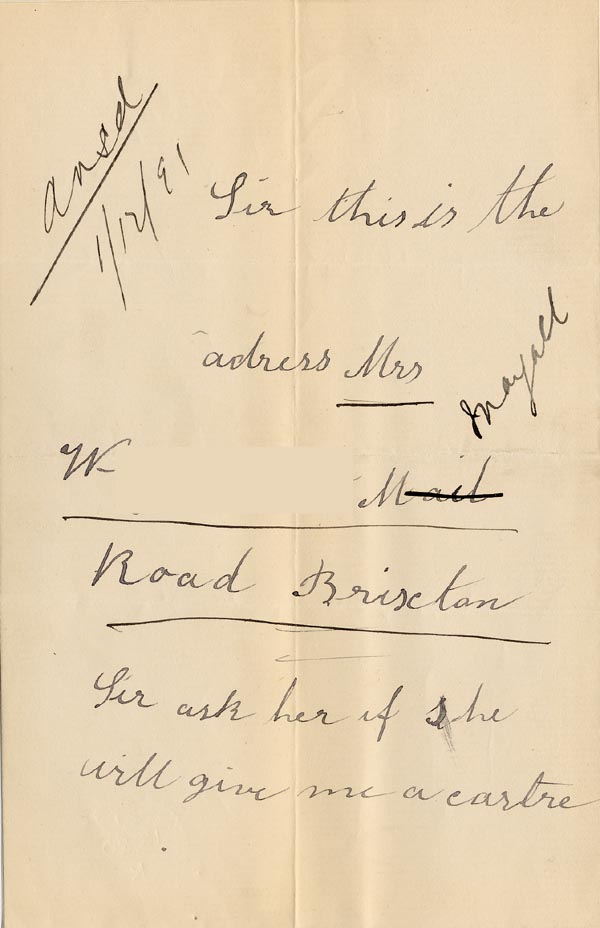 Ansd
1/12/91
Sir this is the
adress Mrs
Mayall
W Mail
Road Brixton
Sir ask her if she
will give me a cartre